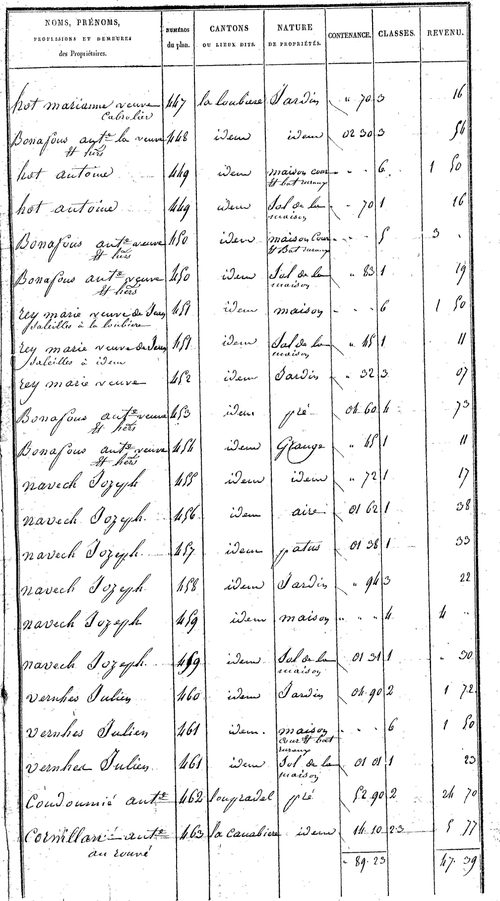 NOMS, PRÉNOMS, PROFESSIONS ET DEMEURES des Propriétaires. NUMÉROS du plan. CANTONS OU LIEUX DITS. NATURE DE PROPRIÉTÉS. CONTENANCE. CLASSES. REVENU.
hot marianne veuve 447 la loubiere Jardin " 70 3 16
Cabrolier
Bonafous ant.e la veuve 448 idem idem 02 30 3 54
& hers
hot antoine 449 idem maison cour - - 6 1 50
& bat ruraux
hot antoine 449 idem Sol de la " 70 1 16
maison
Bonafous ant.e veuve 450 idem maison Cour - - 5 3 "
& hers & Bat ruraux
Bonafous ant.e veuve 450 idem Sol de la " 83 1 19
& hers maison
rey marie veuve de Jean 451 idem maison - - 6 1 50
Saleilles à la loubiere
rey marie veuve de Jean 451 idem Sol de la " 45 1 11
Saleilles à idem maison
rey marie veuve 452 idem Jardin " 32 3 07
Bonafous ant.e veuve 453 idem pré 04 60 4 73
& hers
Bonafous ant.e veuve 454 idem Grange " 45 1 11
& hers
navech Jozeph 455 idem idem " 72 1 17
navech Jozeph 456 idem aire 01 62 1 38
navech Jozeph 457 idem patus 01 38 1 33
navech Jozeph 458 idem Jardin " 94 3 22
navech Jozeph 459 idem maison " " 4 4 "
navech Jozeph 459 idem Sol de la 01 31 1 " 30
maison
vernhes Julien 460 idem Jardin 04 90 2 1 72
vernhes Julien 461 idem. maison - - 6 1 50
cour & bat
ruraux
vernhes Julien 461 idem Sol de la 01 01 1 23
maison
Coudoumié ant.e 462 lou pradel pré 52 90 2 24 70
Cornillan ant.e 463 la canabiere idem 14 10 2-3 5 77
au rouvé
" 89 23 47 39